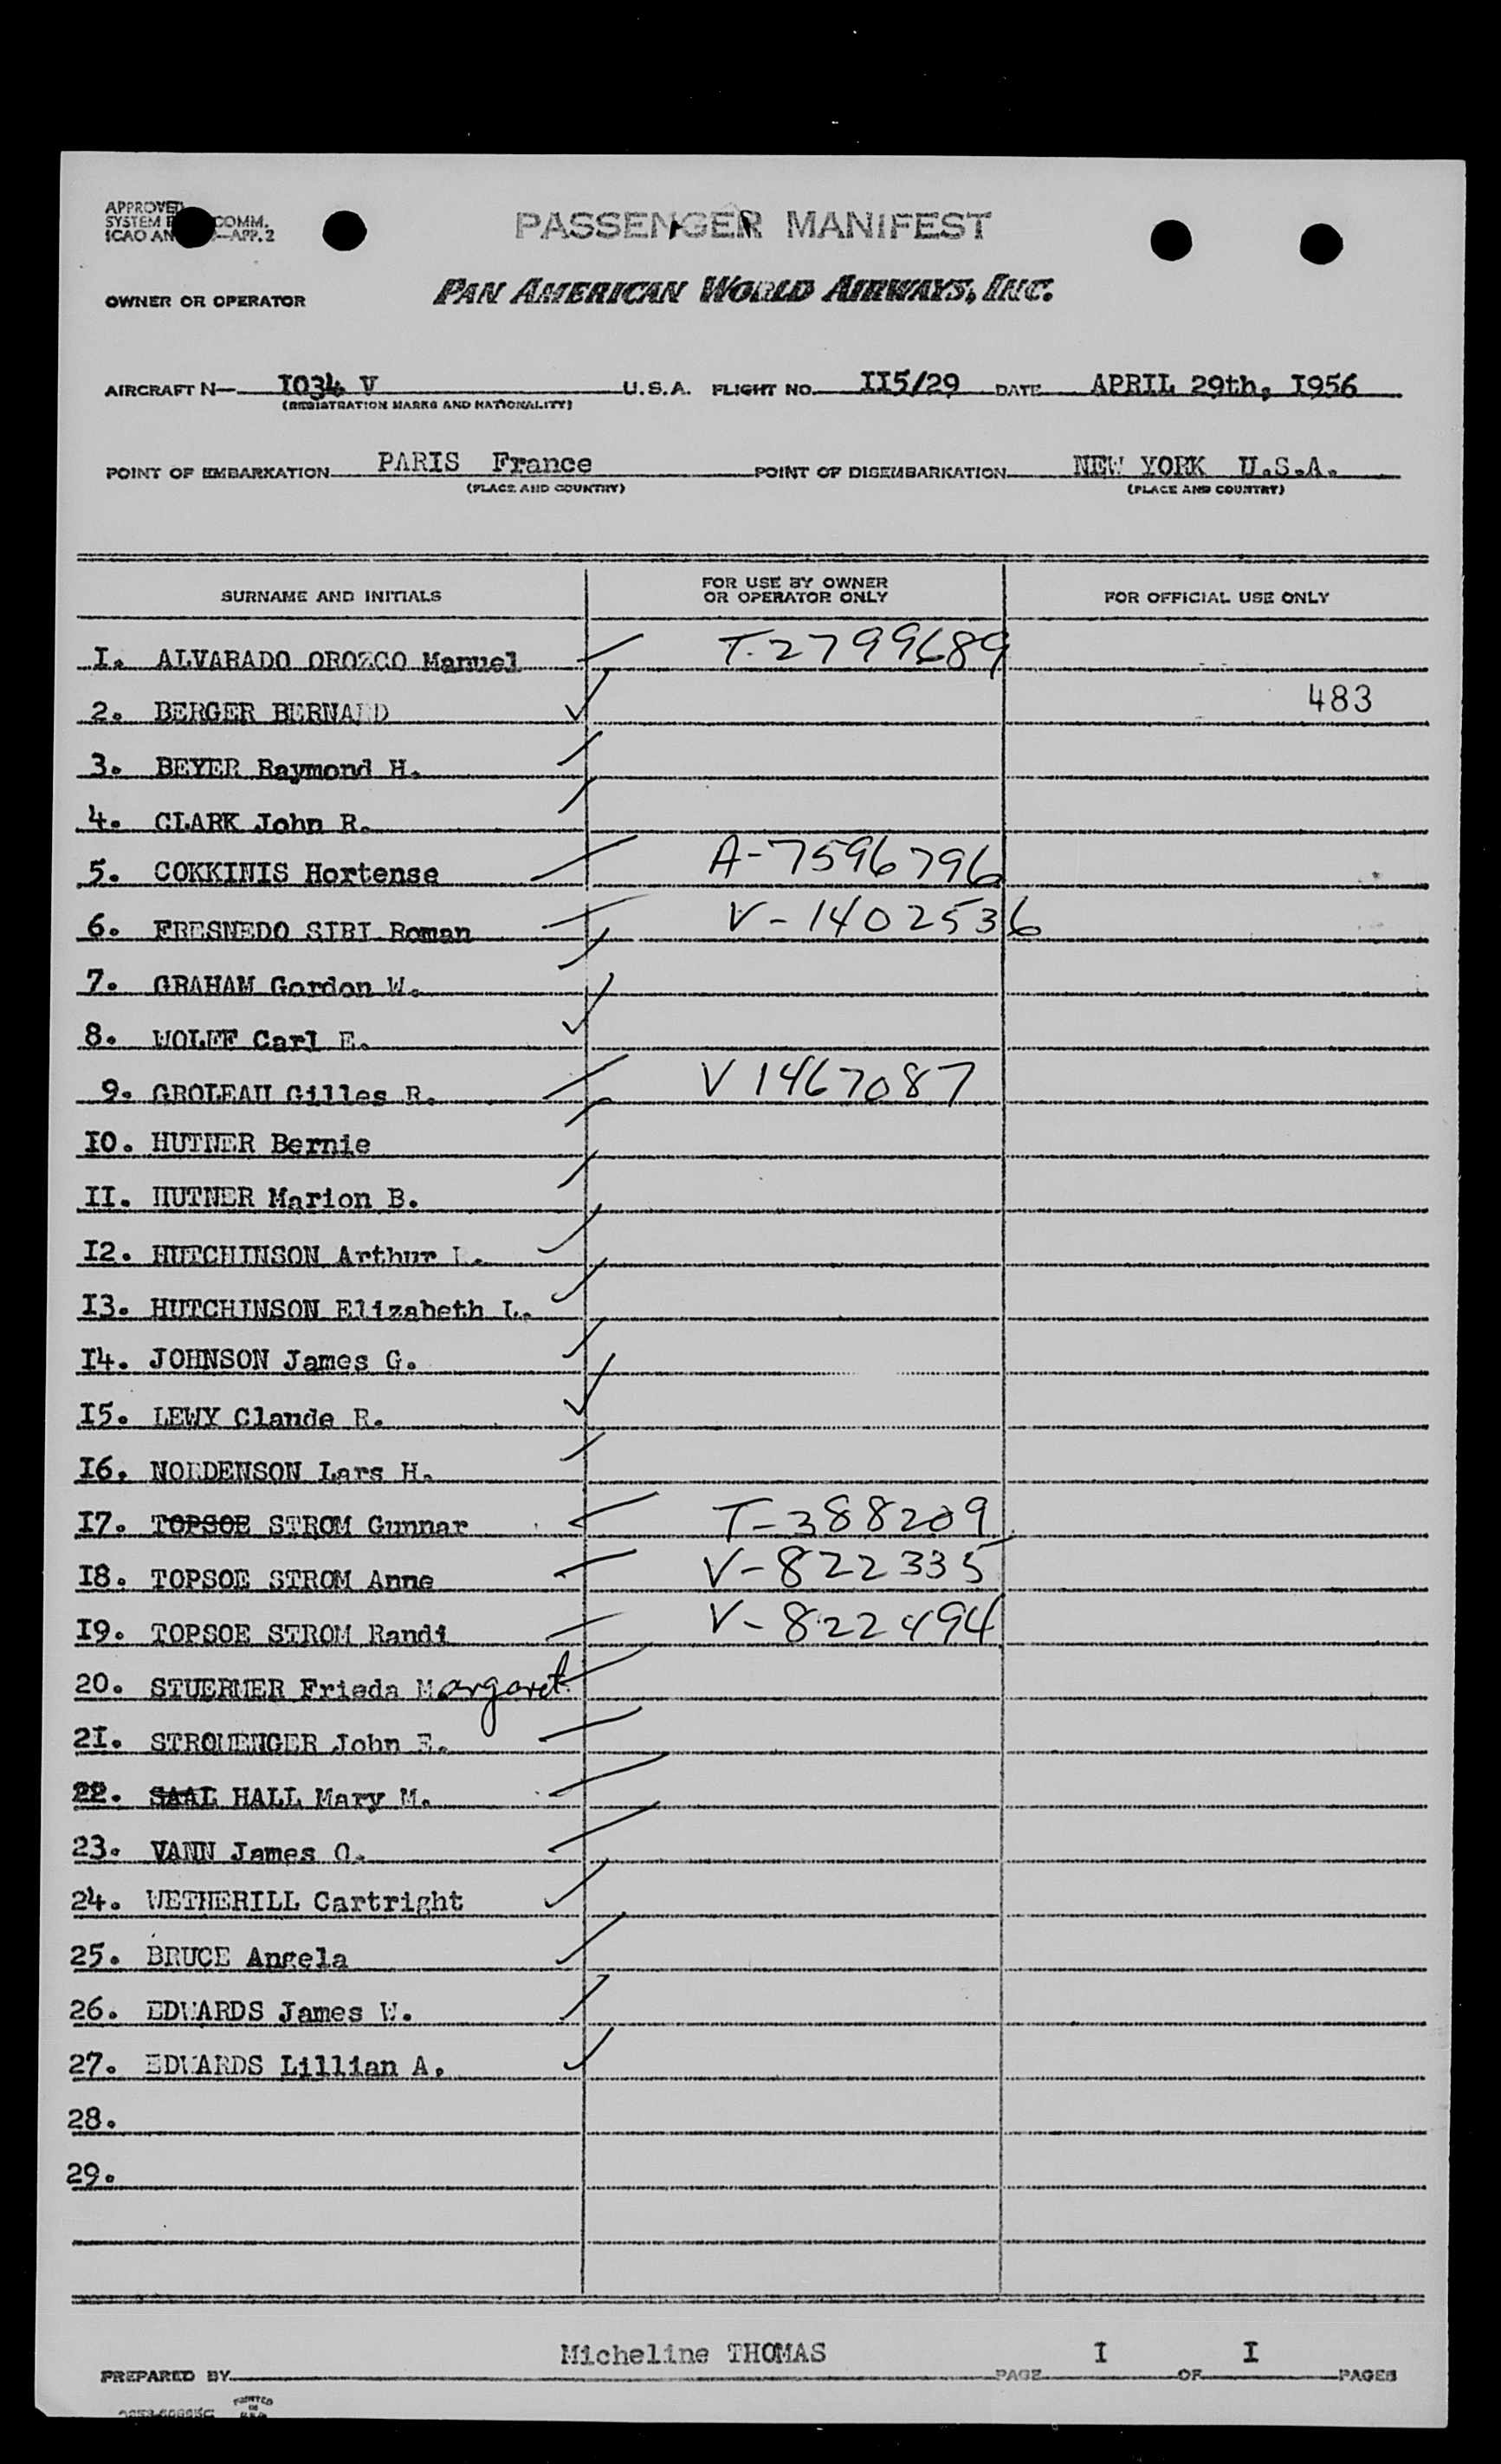 APPROVED
SYSTEM COMM.
ICAO AN —APP.2
PASSENGER MANIFEST
OWNER OR OPERATOR PAN AMERICAN WORLD AIRWAYS, INC.
AIRCRAFT N— I034 V U.S.A. FLIGHT NO. II5/29 DATE APRIL 29th, I956
(REGISTRATION MARKS AND NATIONALITY)
POINT OF EMBARKATION PARIS France POINT OF DISEMBARKATION NEW YORK U.S.A.
(PLACE AND COUNTRY) (PLACE AND COUNTRY)
SURNAME AND INITIALS FOR USE BY OWNER OR OPERATOR ONLY FOR OFFICIAL USE ONLY
I. ALVARADO OROZCO Manuel T-2799689
2. BERGER BERNARD 483
3. BEYER Raymond H.
4. CLARK John R.
5. COKKINIS Hortense A-7596796
6. FRESNEDO SIRI Roman V-1402536
7. GRAHAM Gordon W.
8. WOLFF Carl E.
9. GROLEAU Gilles R. V 1467087
I0. HUTNER Bernie
II. HUTNER Marion B.
I2. HUTCHINSON Arthur L.
I3. HUTCHINSON Elizabeth L.
I4. JOHNSON James G.
I5. LEWY Claude R.
I6. NORDENSON Lars H.
I7. TOPSOE STROM Gunnar T-388209
I8. TOPSOE STROM Anne V-822335
I9. TOPSOE STROM Randi V-822494
20. STUERMER Frieda Margaret
2I. STROMENGER John E.
22. SAAL HALL Mary M.
23. VANN James O.
24. WETHERILL Cartright
25. BRUCE Angela
26. EDWARDS James W.
27. EDWARDS Lillian A.
28.
29.
Micheline THOMAS
PREPARED BY PAGE I OF I PAGES
PRINTED
IN